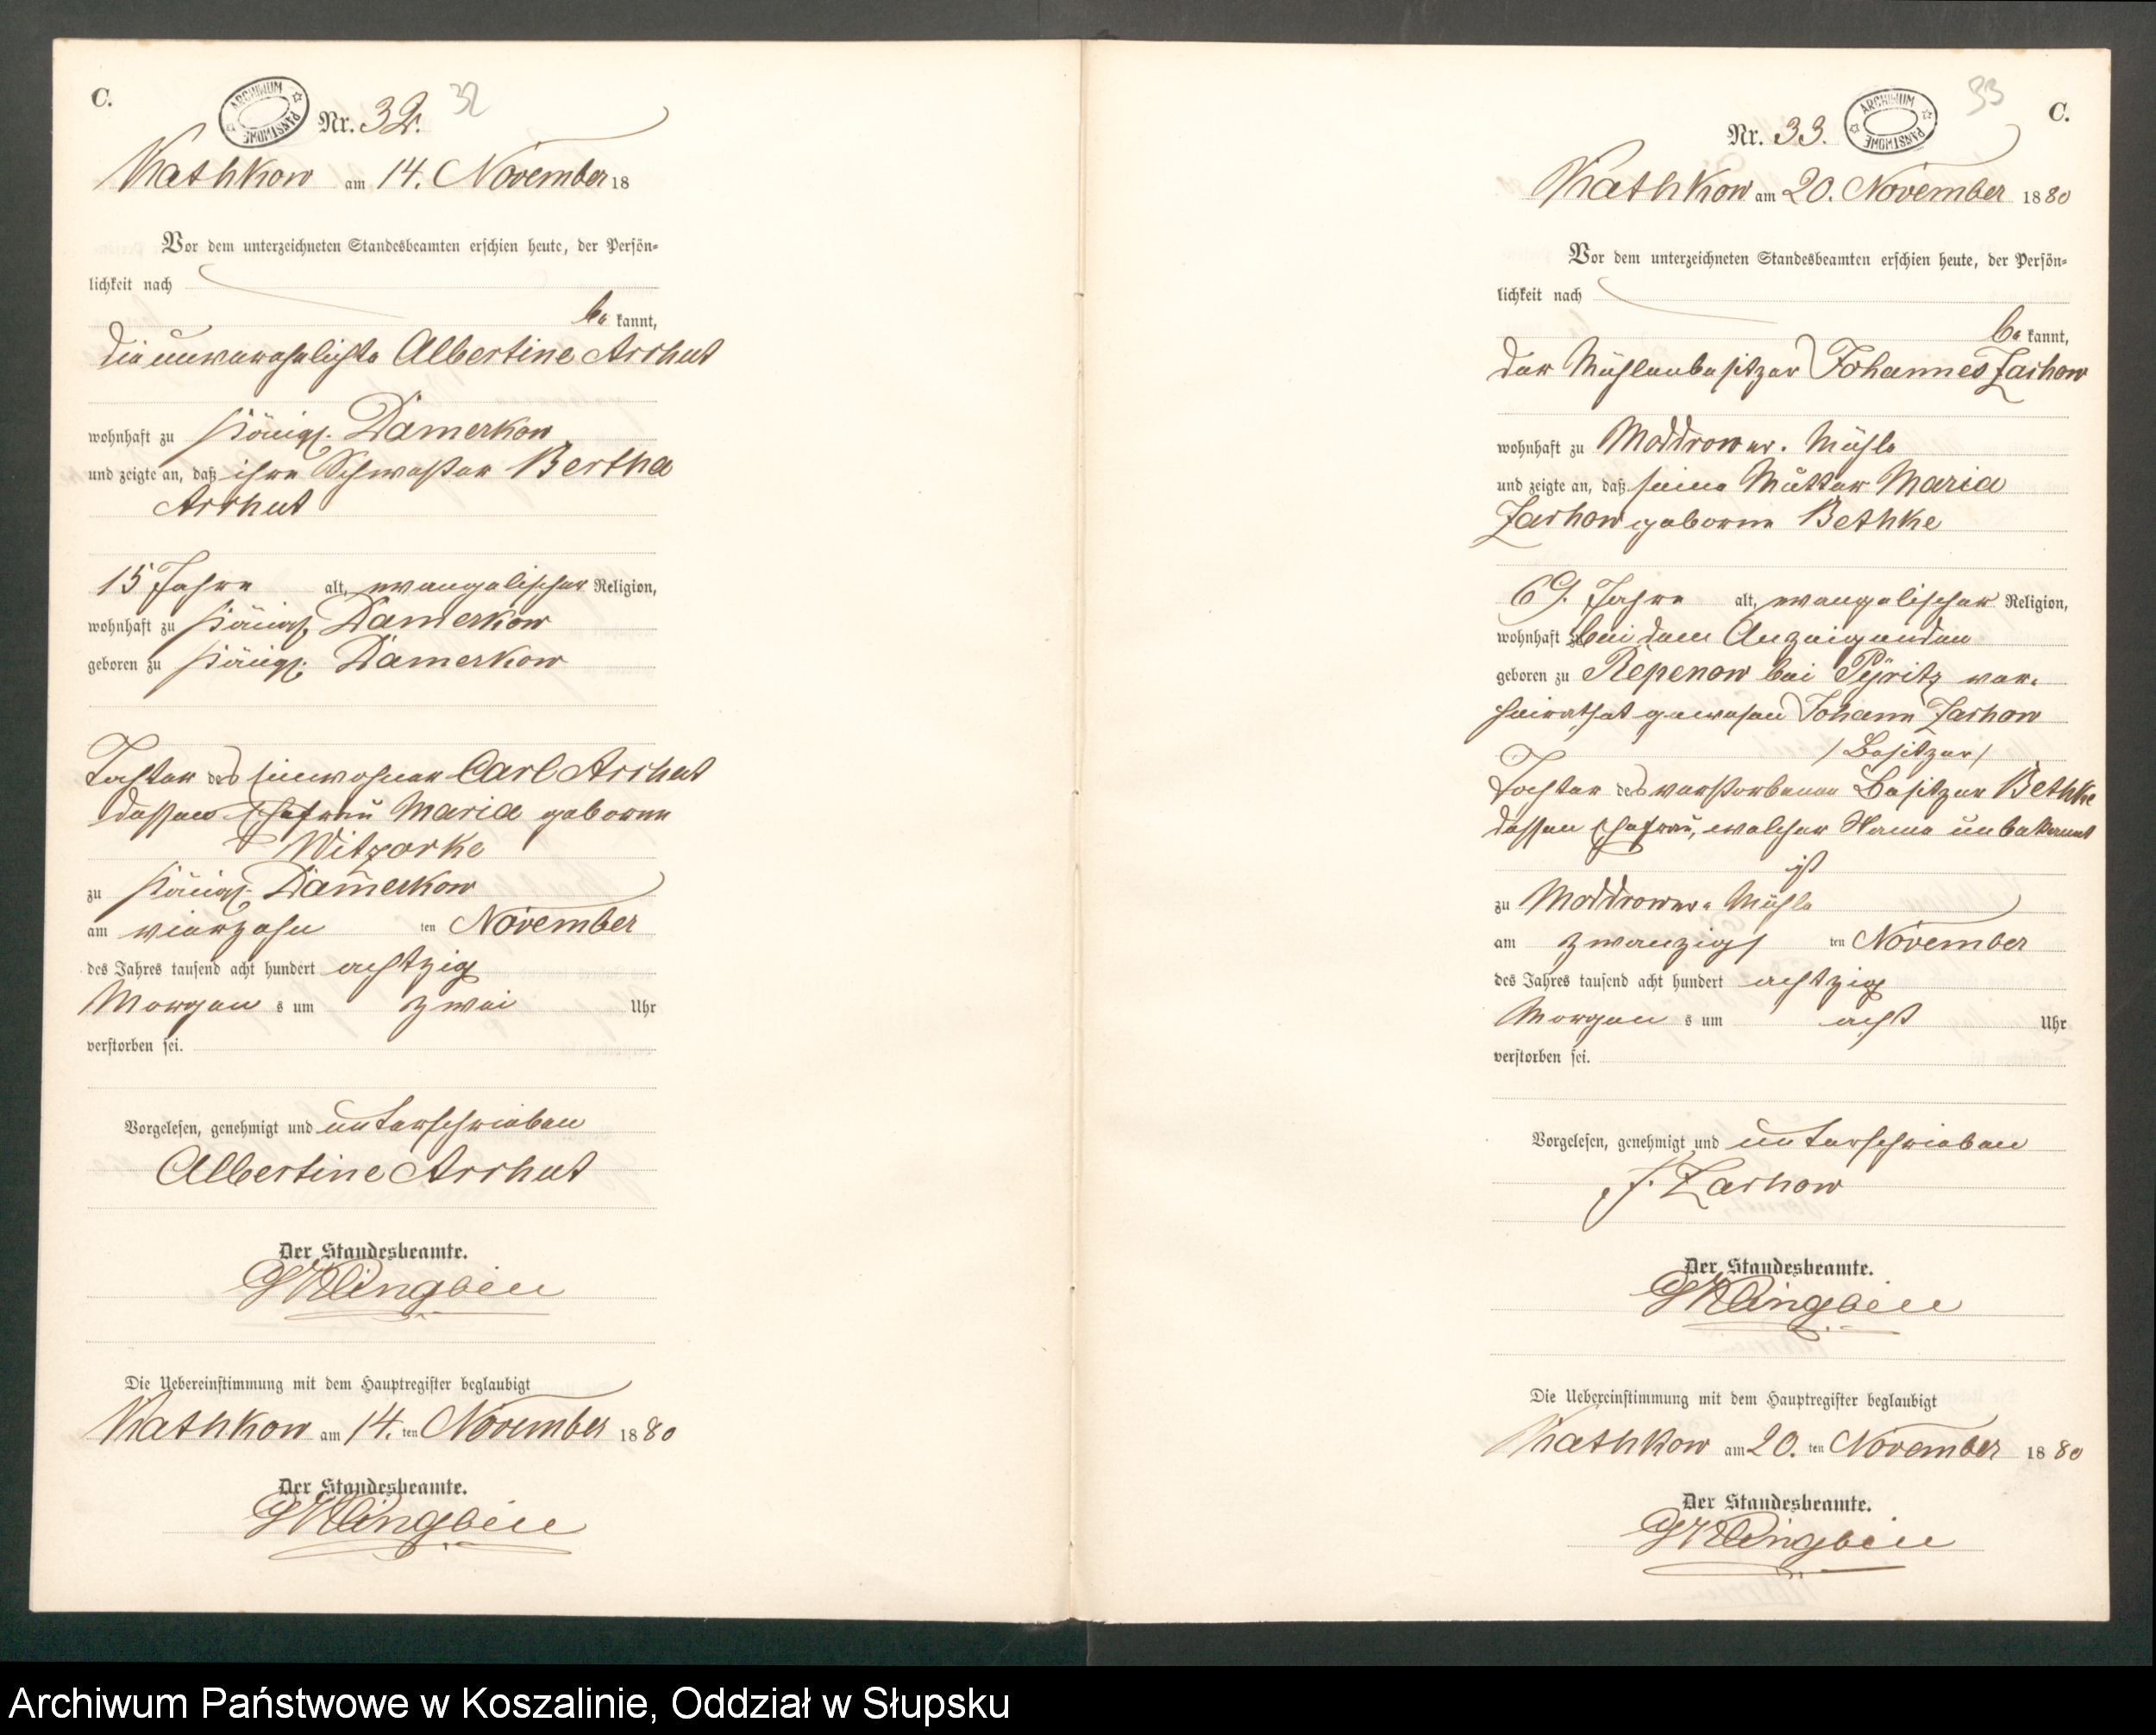 C.
ARCHIWUM PAŃSTWOWE
Nr. 32.
32
Kathkow am 14. November 18
Vor dem unterzeichneten Standesbeamten erschien heute, der Persön-
lichkeit nach
be kannt,
die unverehelichte Albertine Arrhut
wohnhaft zu Königl. Damerkow
und zeigte an, daß ihre Schwester Bertha
Arrhut
15 Jahre alt, evangelischer Religion,
wohnhaft zu Königl. Damerkow
geboren zu Königl. Damerkow
Tochter des Einwohner Carl Arrhut
dessen Ehefrau Maria geborne
Witzorke
zu Königl. Damerkow
am vierzehn ten November
des Jahres tausend acht hundert achtzig
Morgen s um zwei Uhr
verstorben sei.
Vorgelesen, genehmigt und unterschrieben
Albertine Arrhut
Der Standesbeamte.
Klingbeil
Die Uebereinstimmung mit dem Hauptregister beglaubigt
Kathkow am 14. ten November 18 80
Der Standesbeamte.
Klingbeil
C.
33
ARCHIWUM PAŃSTWOWE
Nr. 33.
Kathkow am 20. November 18 80
Vor dem unterzeichneten Standesbeamten erschien heute, der Persön-
lichkeit nach
be kannt,
der Mühlenbesitzer Johannes Zachow
wohnhaft zu Moddrower. Mühle
und zeigte an, daß seine Mutter Maria
Zachow geborne Bethke
69. Jahre alt, evangelischer Religion,
wohnhaft zu bei dem Anzeigenden
geboren zu Repenow bei Pÿritz ver.
heirathet gewesen Johann Zachow
/ Besitzer /
Tochter des verstorbenen Besitzer Bethke
dessen Ehefrau, welcher Name unbekannt
ist
zu Moddrower. Mühle
am zwanzigs ten November
des Jahres tausend acht hundert achtzig
Morgen s um acht Uhr
verstorben sei.
Vorgelesen, genehmigt und unterschrieben
J. Zachow
Der Standesbeamte.
Klingbeil
Die Uebereinstimmung mit dem Hauptregister beglaubigt
Kathkow am 20. ten November 18 80
Der Standesbeamte.
Klingbeil
Archiwum Państwowe w Koszalinie, Oddział w Słupsku